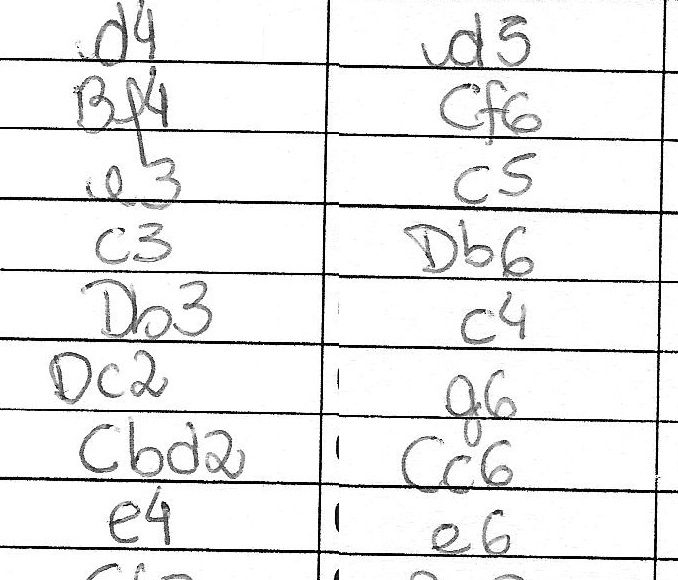 d4 d5
Bf4 Cf6
e3 c5
c3 Db6
Db3 c4
Dc2 g6
Cbd2 Cc6
e4 e6